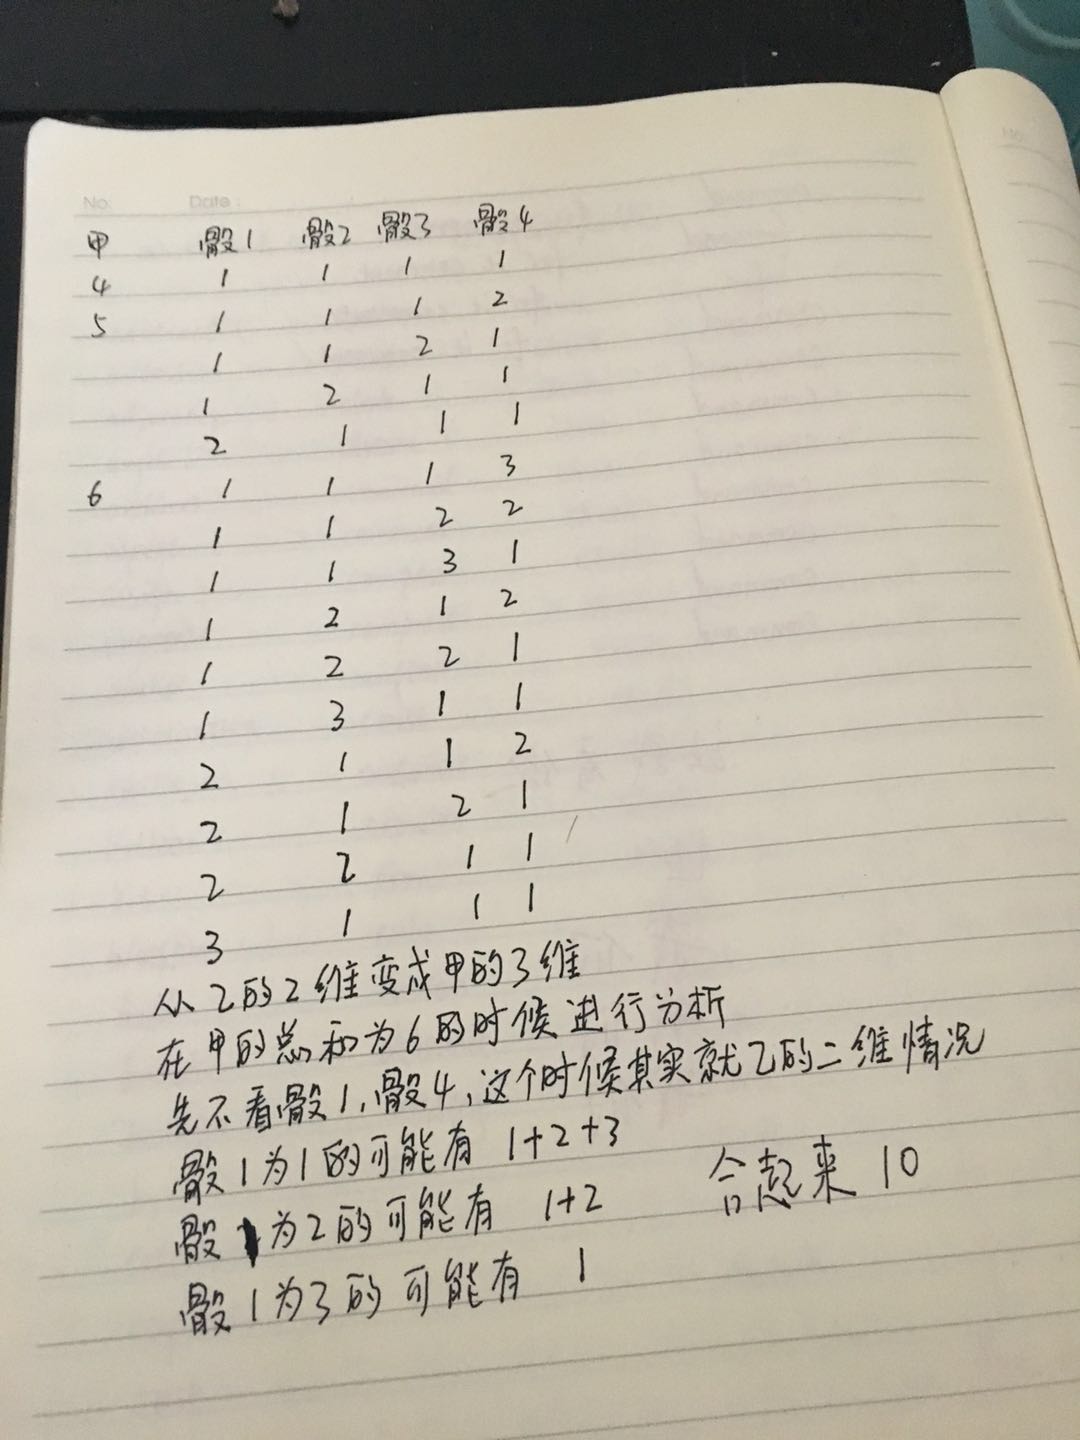 No.  Date :
甲 骰1 骰2 骰3 骰4
4 1 1 1 1
5 1 1 1 2
1 1 2 1
1 2 1 1
2 1 1 1
6 1 1 1 3
1 1 2 2
1 1 3 1
1 2 1 2
1 2 2 1
1 3 1 1
2 1 1 2
2 1 2 1
2 2 1 1
3 1 1 1
从乙的2维变成甲的3维
在甲的总和为6的时候进行分析
先不看骰1,骰4,这个时候其实就乙的二维情况
骰1为1的可能有 1+2+3
骰1为2的可能有 1+2 合起来 10
骰1为3的可能有 1
No.